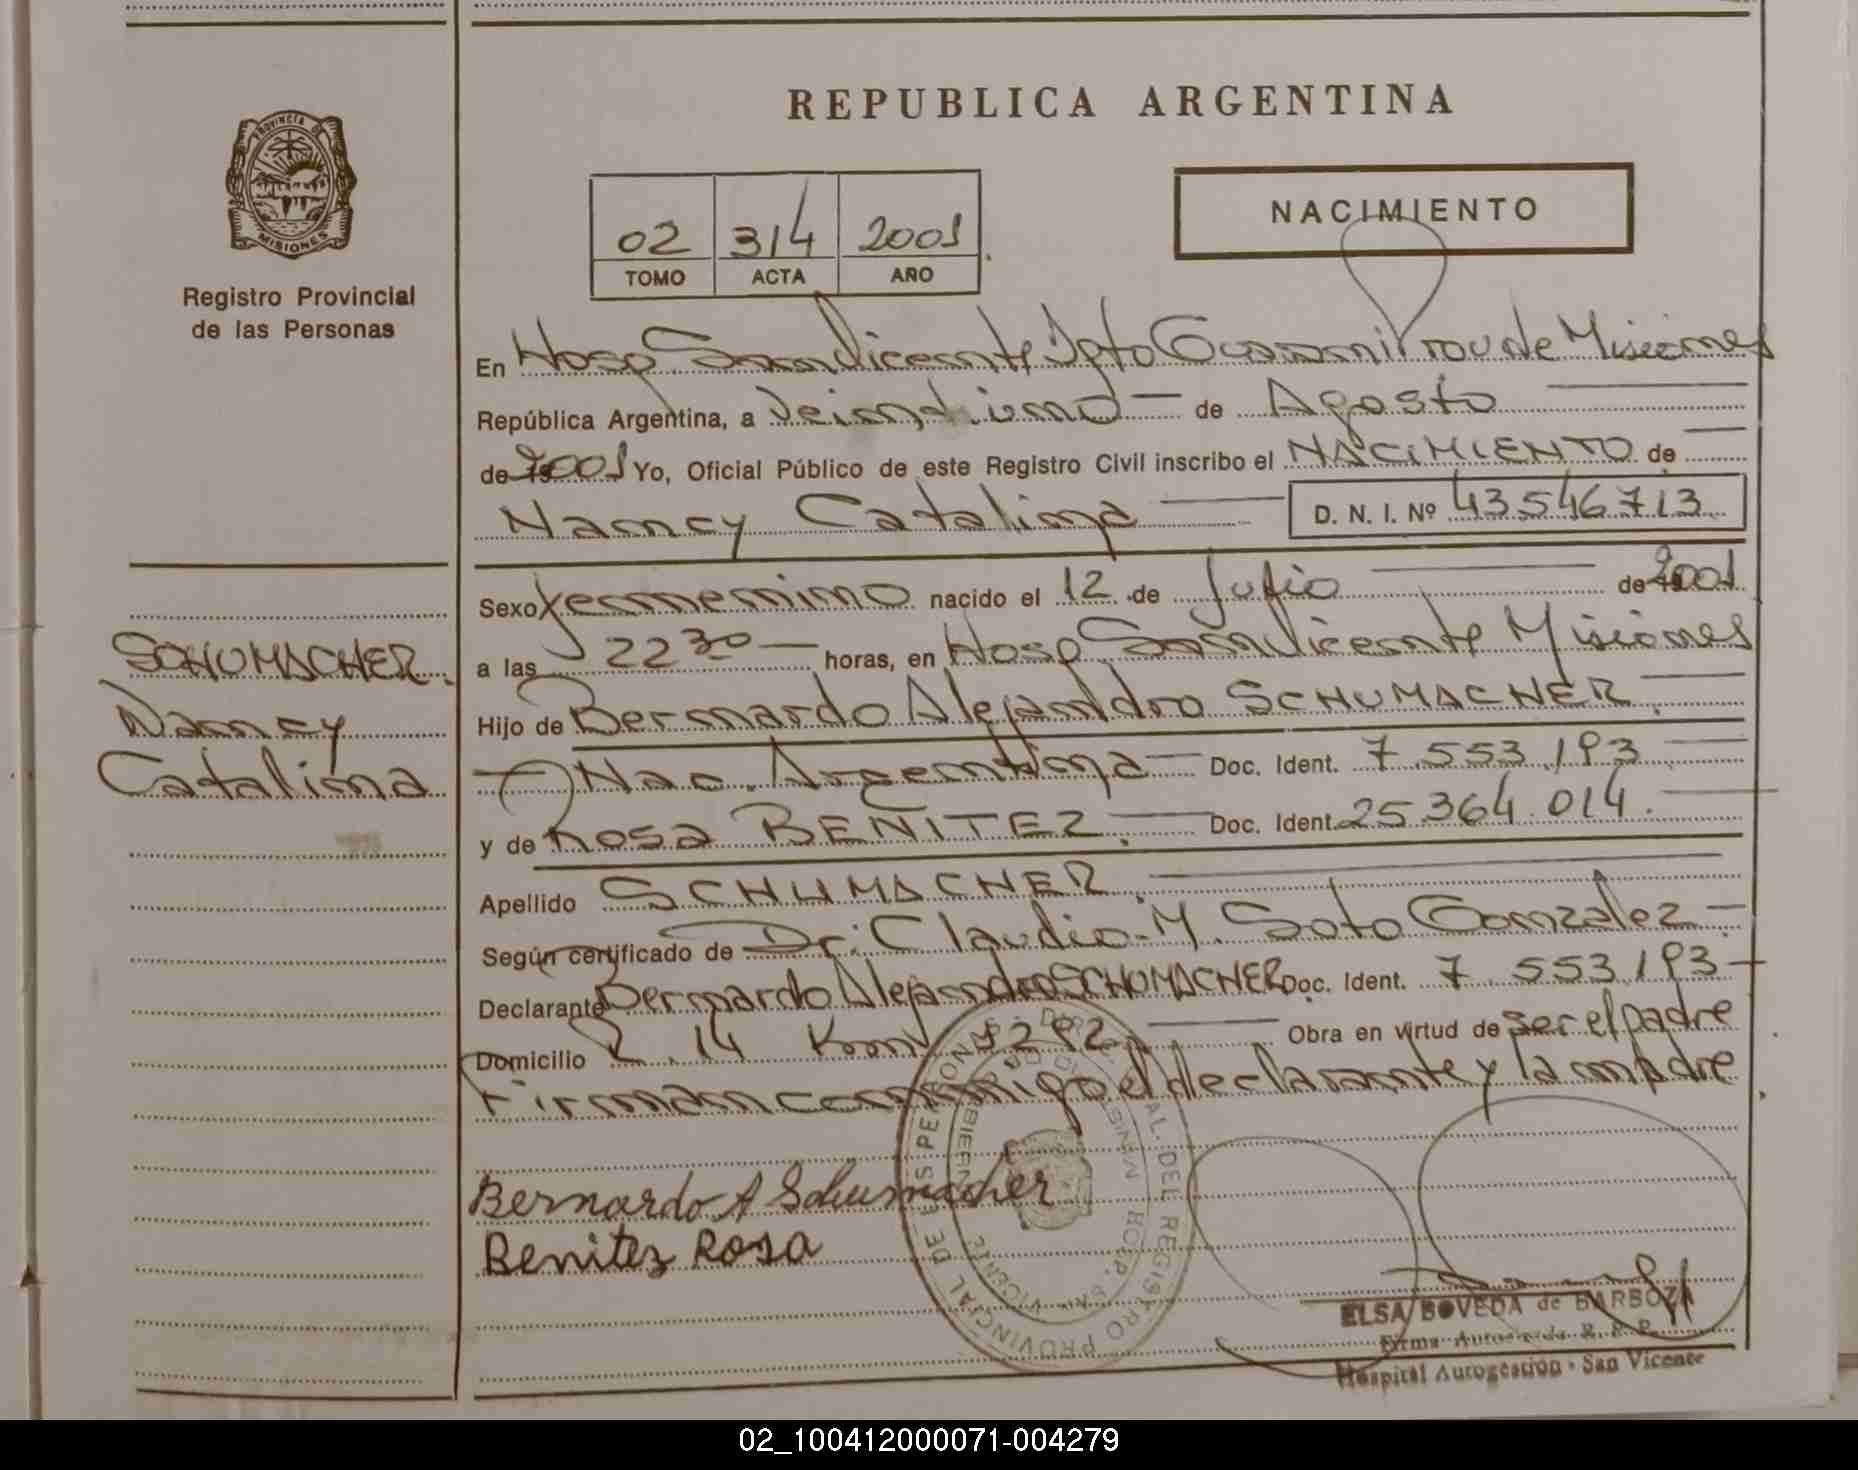 REPUBLICA ARGENTINA
PROVINCIA D
MISIONES
Registro Provincial
de las Personas
02 314 2001
TOMO ACTA AÑO
NACIMIENTO
En Hosp San Vicente Dpto Guarani Prov de Misiones
República Argentina, a Veintiuno de Agosto
de 2001 Yo, Oficial Público de este Registro Civil inscribo el NACIMIENTO de
Nancy Catalina D. N. I. Nº 43546713
Sexo Femenino nacido el 12 de Julio de 2001
a las 22 30 horas, en Hosp San Vicente Misiones
SCHUMACHER
Nancy
Catalina
Hijo de Bernardo Alejandro SCHUMACHER
Nac. Argentina Doc. Ident. 7.553.193
y de Rosa BENITEZ Doc. Ident. 25.364.014.
Apellido SCHUMACHER
Según certificado de Dr. Claudio M. Soto Gonzalez
Declarante Bernardo Alejandro SCHUMACHER Doc. Ident. 7.553.193
Domicilio R. 14 Km 1292 Obra en virtud de ser el padre
Firman conmigo el declarante y la madre
Bernardo A Schumacher
Benitez Rosa
ELSA BOVEDA de BARBOZA
Firma
Hospital Autogestión - San Vicente
02_100412000071-004279